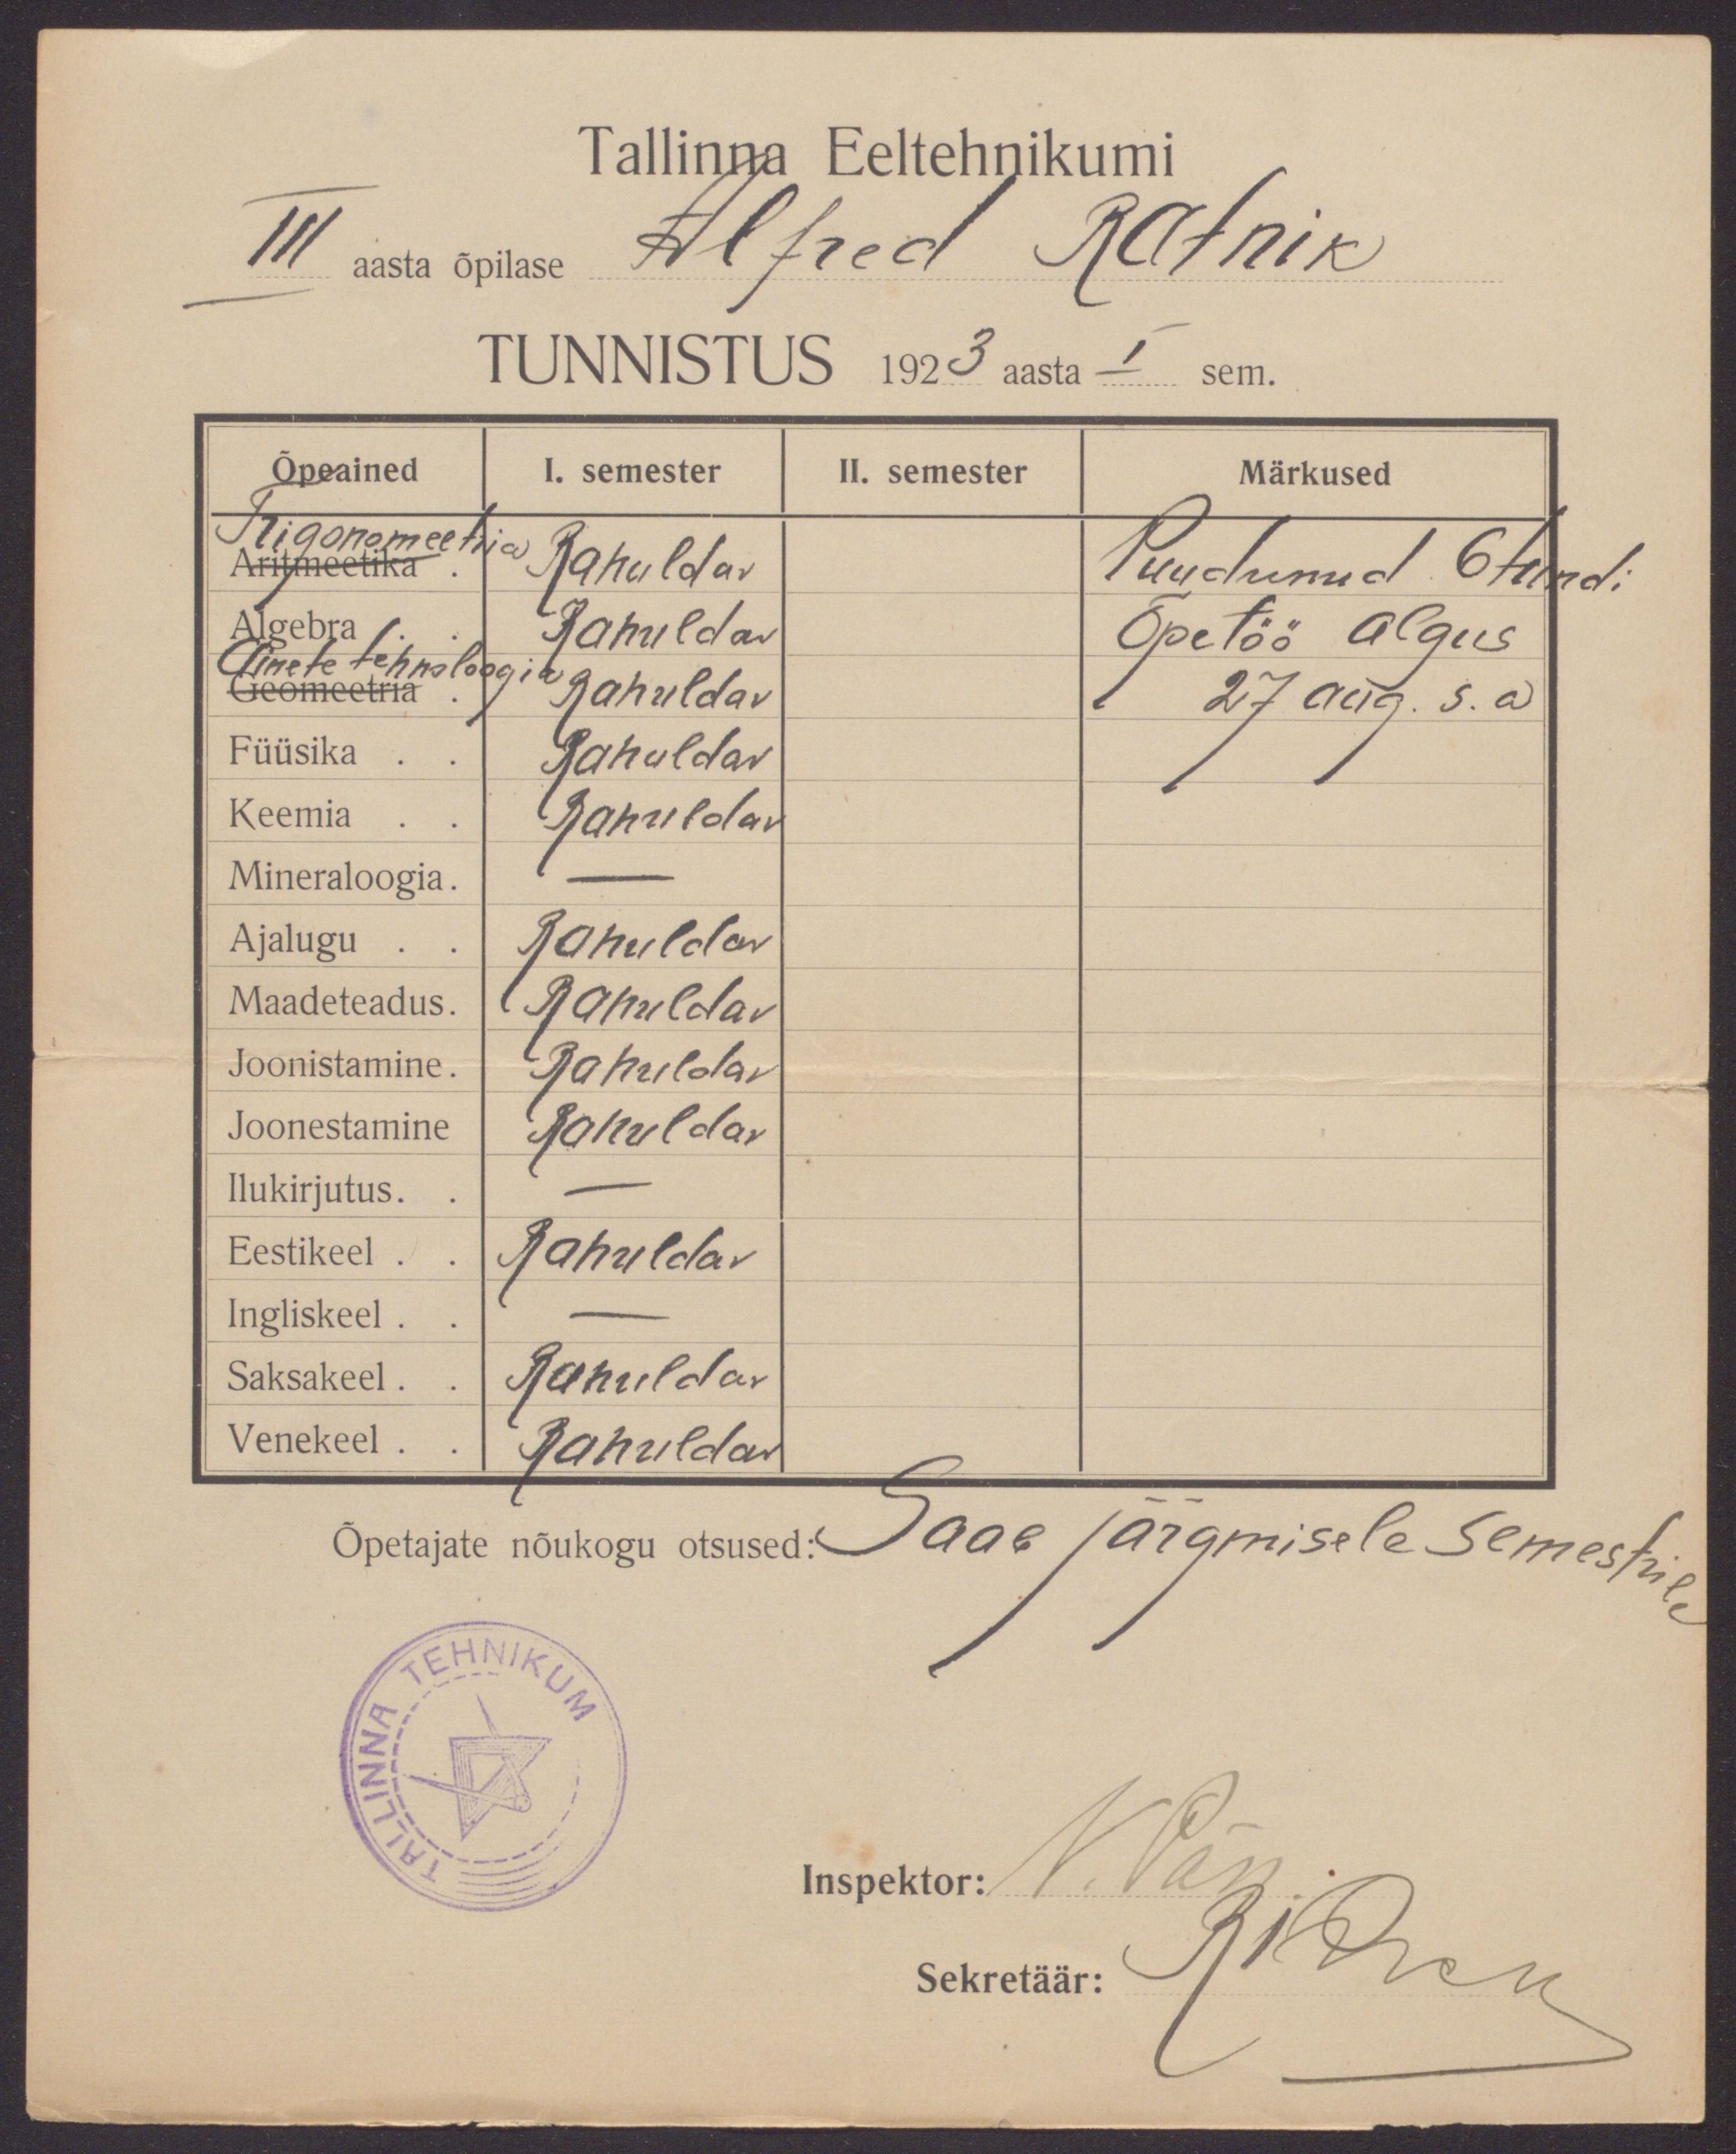 Tallinna Eeltehnikumi
III aasta õpilase Alfred Ratnik
TUNNISTUS 1923 aasta I sem.
Õpeained I. semester II. semester Märkused
Trigonomeetria
Aritmeetika . Rahuldav Puudunud 6 tundi
Algebra . . Rahuldav Õpetöö algus
Ainete tehnoloogia
Geomeetria . Rahuldav 27 aug. s. a
Füüsika . . Rahuldav
Keemia . . Rahuldav
Mineraloogia. —
Ajalugu . . Rahuldav
Maadeteadus. Rahuldav
Joonistamine. Rahuldav
Joonestamine Rahuldav
Ilukirjutus. . —
Eestikeel . . Rahuldav
Ingliskeel . . —
Saksakeel . . Rahuldav
Venekeel . . Rahuldav
Õpetajate nõukogu otsused: Saab järgmisele semestrile
TALLINNA TEHNIKUM
Inspektor: N.
Sekretäär: